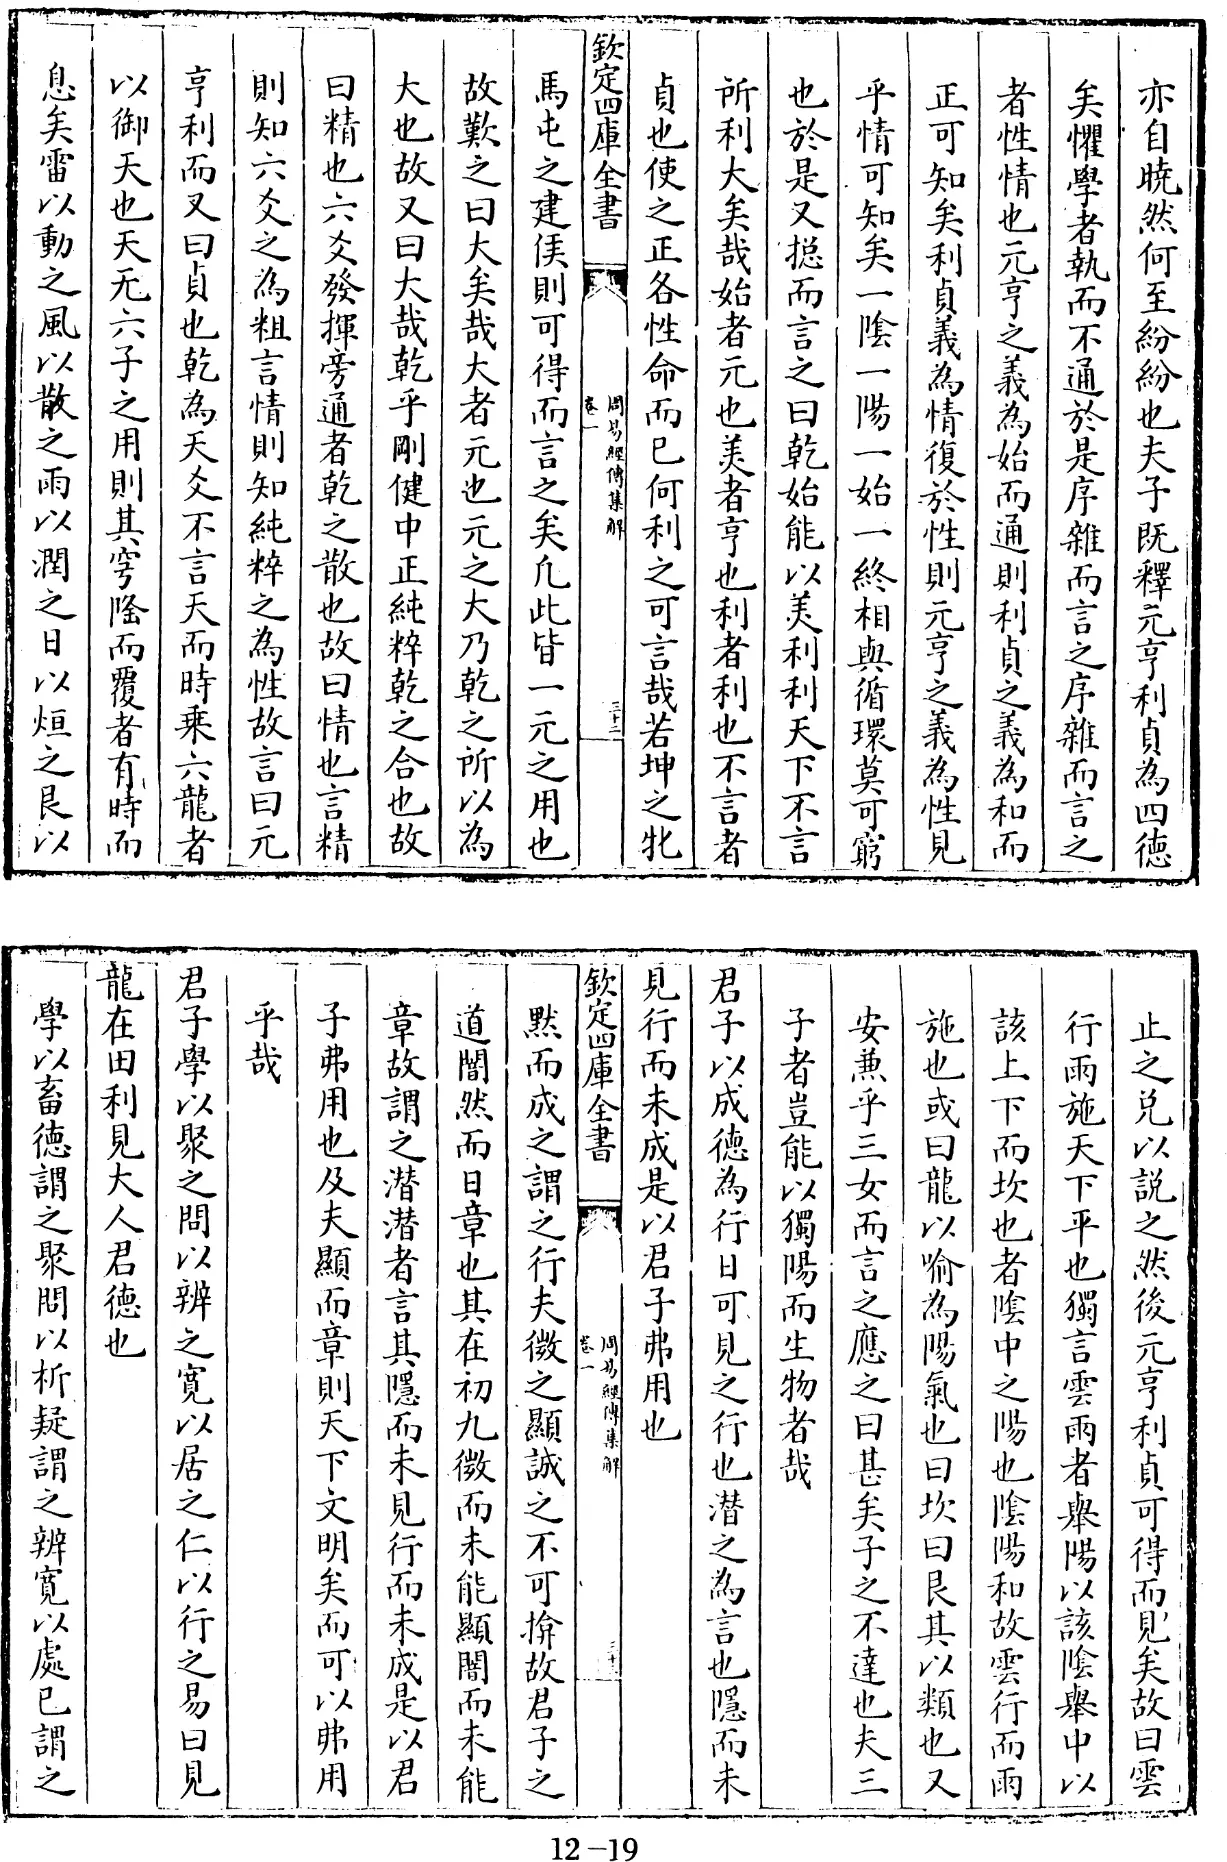 亦自曉然何至紛紛也夫子既釋元亨利貞為四德
矣懼學者執而不通於是序雜而言之序雜而言之
者性情也元亨之義為始而通則利貞之義為和而
正可知矣利貞義為情復於性則元亨之義為性見
乎情可知矣一陰一陽一始一終相與循環莫可窮
也於是又揔而言之曰乾始能以美利利天下不言
所利大矣哉始者元也美者亨也利者利也不言者
貞也使之正各性命而已何利之可言哉若坤之牝
欽定四庫全書
周易經傳集解
卷一
三十二
馬屯之建侯則可得而言之矣凡此皆一元之用也
故歎之曰大矣哉大者元也元之大乃乾之所以為
大也故又曰大哉乾乎剛健中正純粹乾之合也故
曰精也六爻發揮旁通者乾之散也故曰情也言精
則知六爻之為粗言情則知純粹之為性故言曰元
亨利而又曰貞也乾為天爻不言天而時乘六龍者
以御天也天无六子之用則其穹隆而覆者有時而
息矣雷以動之風以散之雨以潤之日以烜之艮以
止之兌以説之然後元亨利貞可得而見矣故曰雲
行雨施天下平也獨言雲雨者舉陽以該陰舉中以
該上下而坎也者陰中之陽也陰陽和故雲行而雨
施也或曰龍以喻為陽氣也曰坎曰艮其以類也又
安兼乎三女而言之應之曰甚矣子之不達也夫三
子者豈能以獨陽而生物者哉
君子以成德為行日可見之行也潛之為言也隱而未
見行而未成是以君子弗用也
欽定四庫全書
周易經傳集解
卷一
三十三
默而成之謂之行夫微之顯誠之不可揜故君子之
道闇然而日章也其在初九微而未能顯闇而未能
章故謂之潛潛者言其隱而未見行而未成是以君
子弗用也及夫顯而章則天下文明矣而可以弗用
乎哉
君子學以聚之問以辨之寛以居之仁以行之易曰見
龍在田利見大人君德也
學以畜德謂之聚問以析疑謂之辨寛以處已謂之
12-19